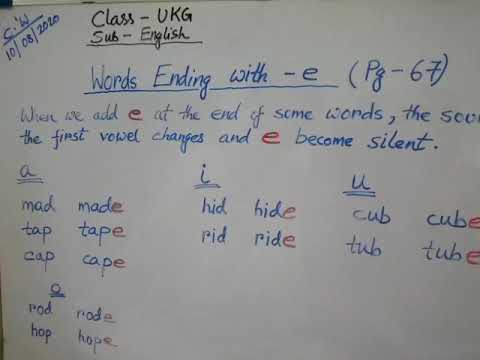 C.W
10/08/2020
Class - UKG
Sub - English
Words Ending with -e (Pg-67)
When we add e at the end of some words, the
the first vowel changes and e become silent.
a
mad made
tap tape
cap cape
i
hid hide
rid ride
u
cub cube
tub tube
o
rod rode
hop hope